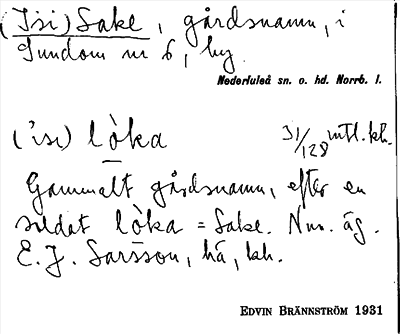 (Isi) Sake, gårdsnamn, i
Sundom nr 6, by.
Nederluleå sn. o. hd. Norrb. l.
('isi) lòka 31/128 mtl. kh.
Gammalt gårdsnamn, efter en
soldat lòka = Sake. Nuv. äg.
E. J. Sarsson, hä, kh.
EDVIN BRÄNNSTRÖM 1931